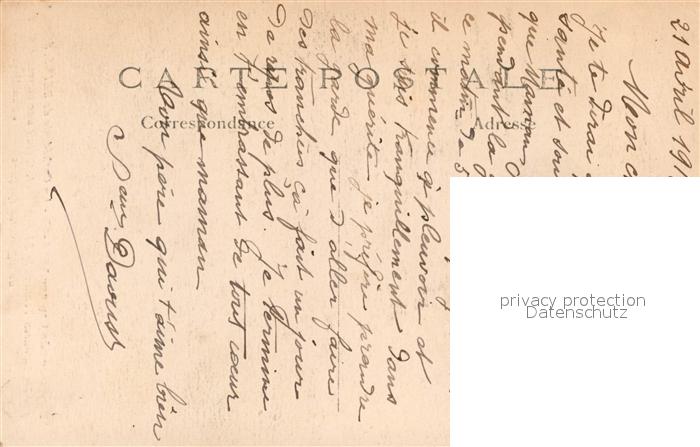 21 avril 191
Mon c
Je te dirai
santé et sou
que Maman
pendant la
ce matin de 5
il commence à pleuvoir et
je suis tranquillement dans
ma guérite je préfère prendre
la garde que d'aller faire
des tranchées çà fait un jour
de repos de plus. Je termine
en t'embrassant de tout cœur
ainsi que maman
Ton père qui t'aime bien
Daoust
CARTE POSTALE
Correspondance
Adresse
privacy protection
Datenschutz